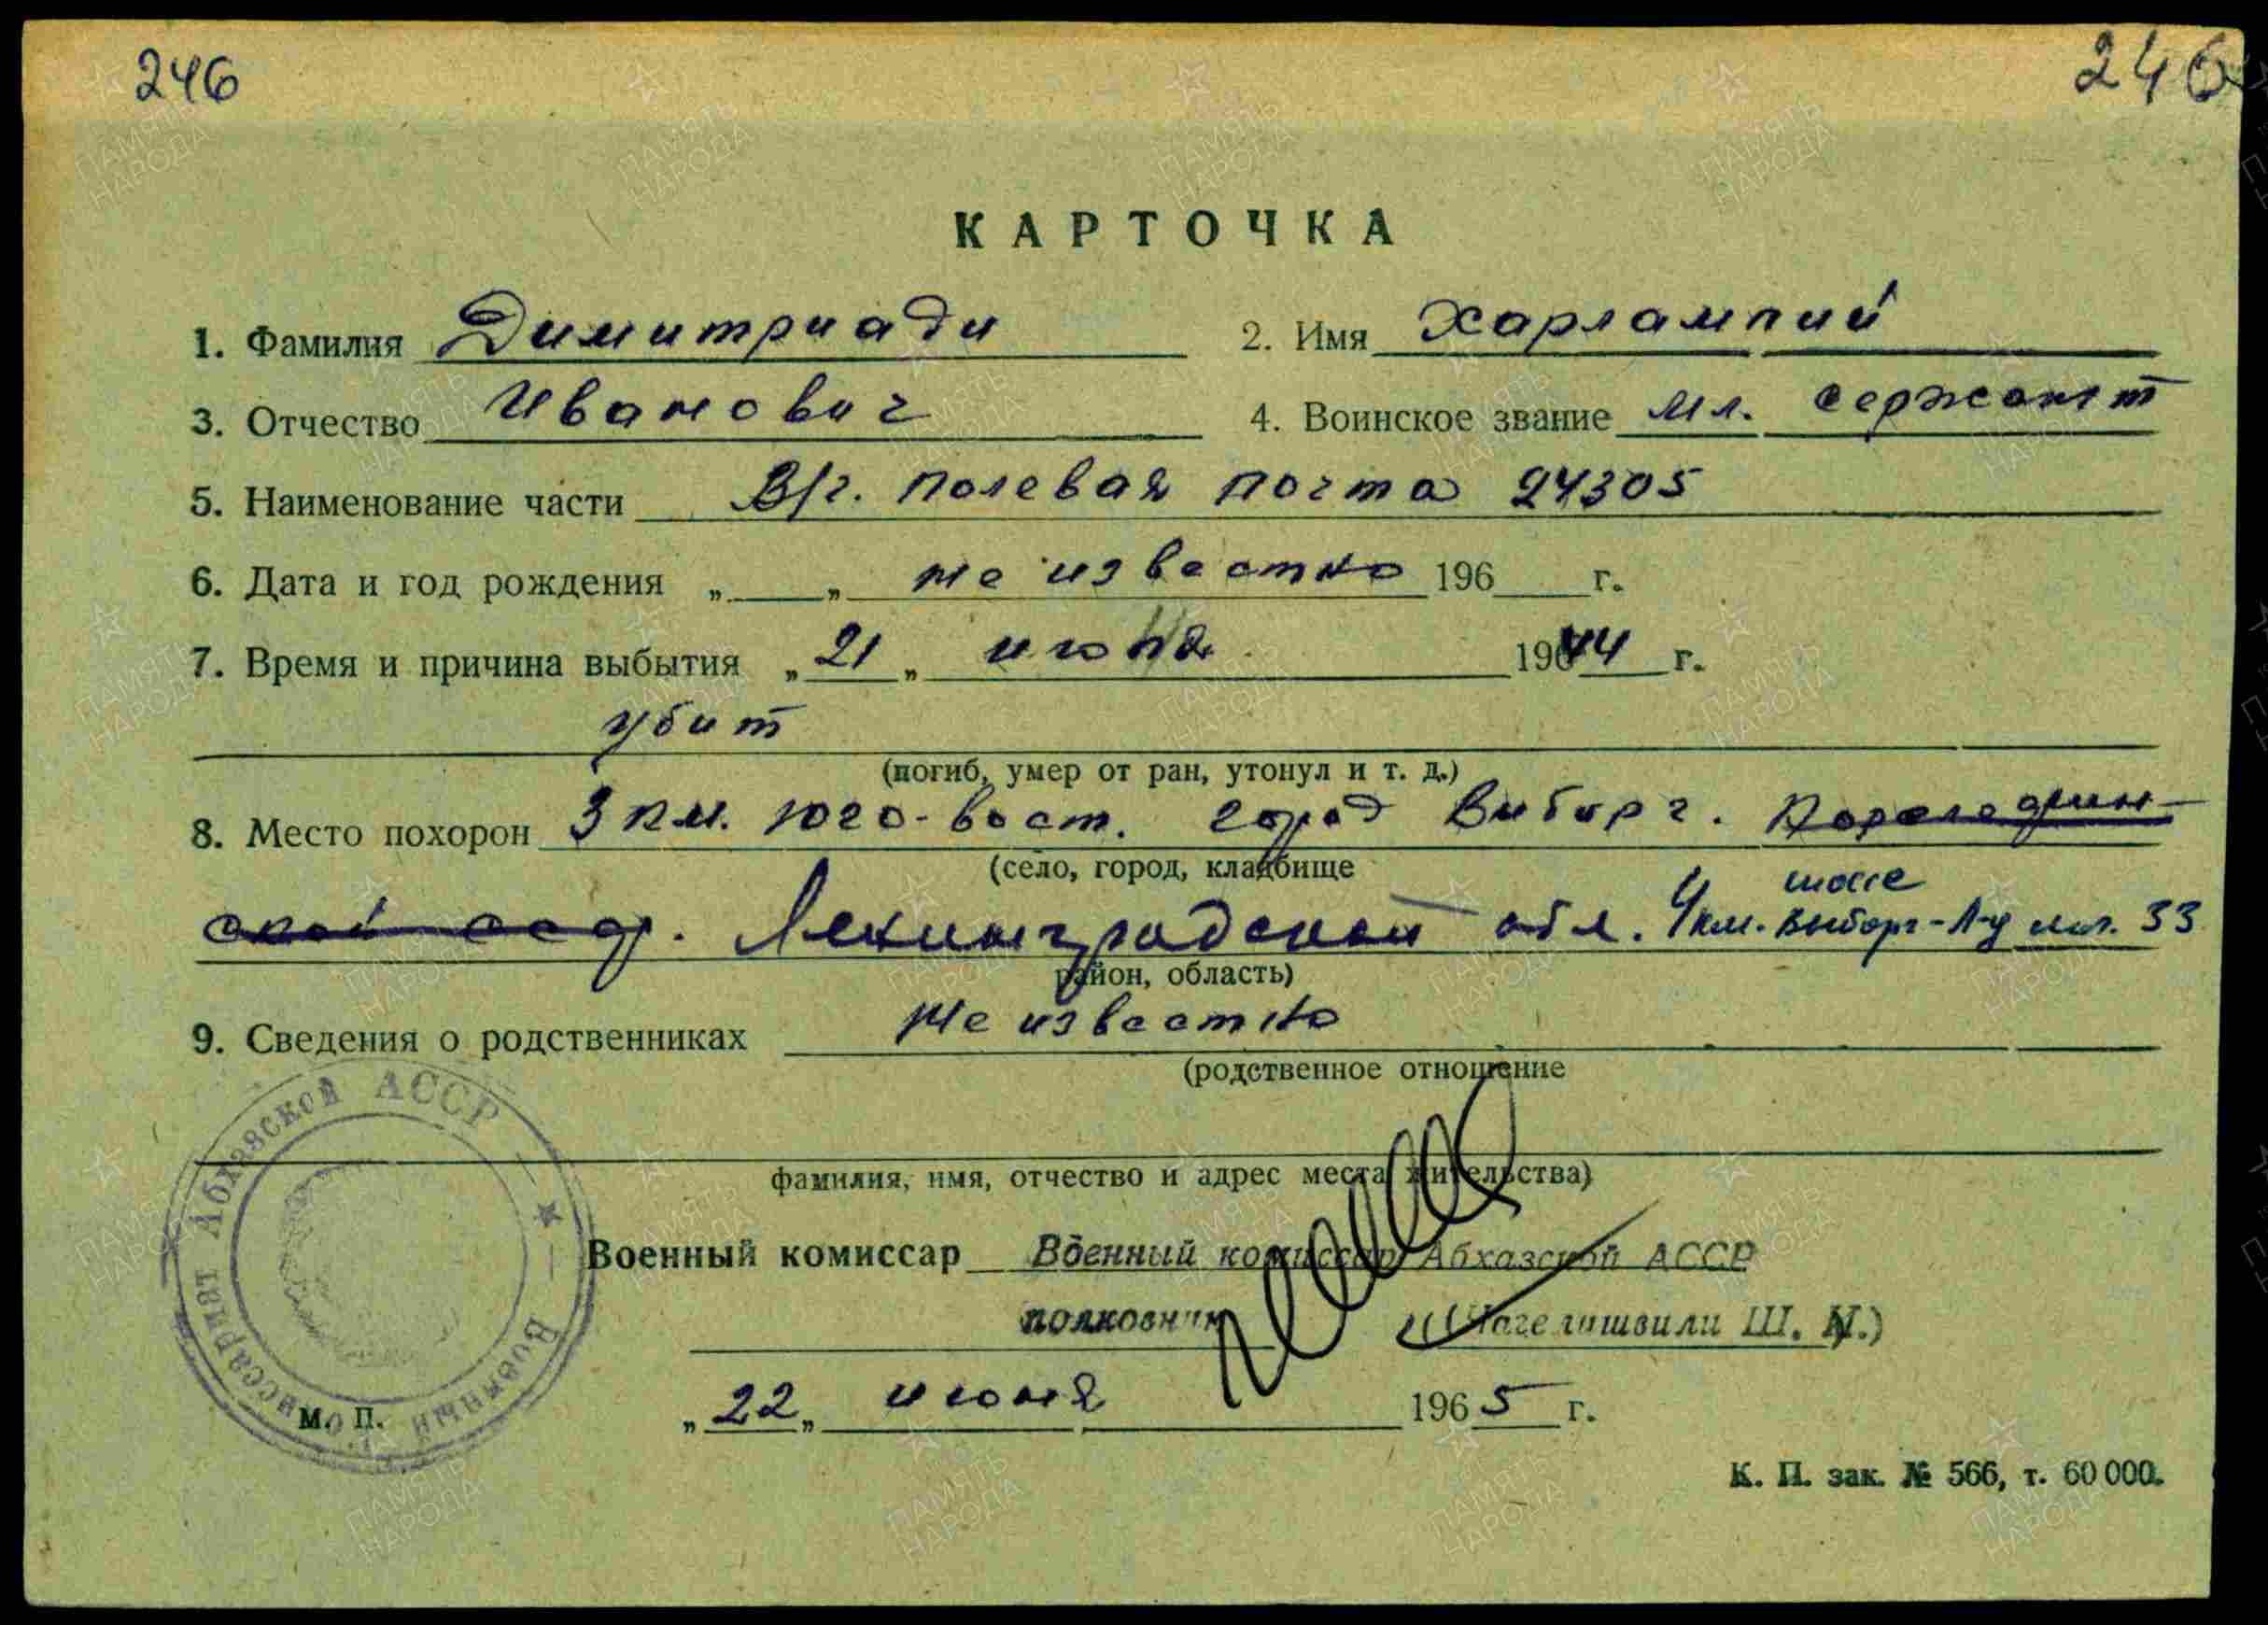 246
246
КАРТОЧКА
1. Фамилия Димитриади 2. Имя Харлампий
3. Отчество Иванович 4. Воинское звание мл. сержант
5. Наименование части В/ч. полевая почта 24305
6. Дата и год рождения „ „ не известно 196 г.
7. Время и причина выбытия „21„ июня 1944 г.
убит
(погиб, умер от ран, утонул и т. д.)
8. Место похорон 3 км. юго-вост. город Виборг. Карелофин-
(село, город, кладбище
шоссе
ской сср. Ленинградской обл. 4 км. Выборг-Л-д мл. 33
район, область)
9. Сведения о родственниках не известно
(родственное отношение
фамилия, имя, отчество и адрес места жительства)
Военный комиссар Военный комиссар Абхазской АССР
полковник Ш. И.)
„22„ июня 1965 г.
м. п.
Военный Комиссариат Абхазской АССР
К. П. зак. № 566, т. 60 000.
ПАМЯТЬ НАРОДА